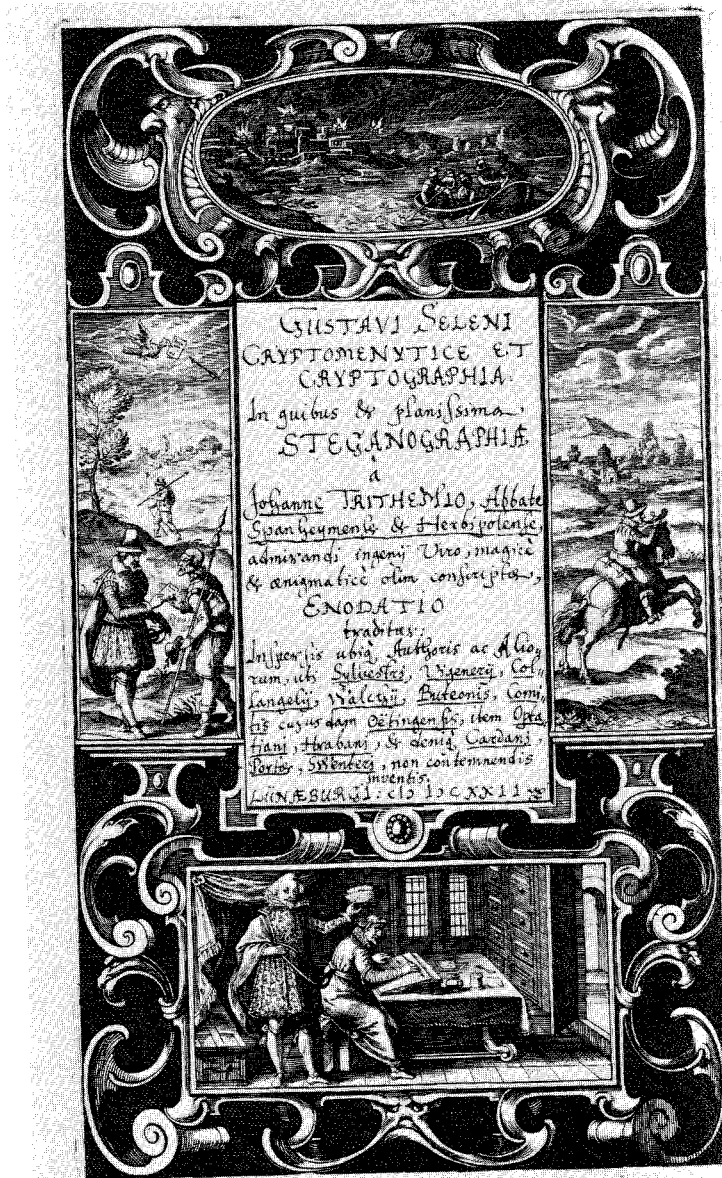 GUSTAVI SELENI
CRYPTOMENYTICE ET
CRYPTOGRAPHIA.
In quibus & planissima
STEGANOGRAPHIÆ
à
Johanne TRITHEMIO, Abbate
Spanheymensi & Herbipolensi,
admirandi ingenij Viro, magicè
& ænigmaticè olim conscriptæ,
ENODATIO
traditur.
Inspersis ubiq; Authoris ac Alio,,
rum, uti Sylvestri, Vigenerij, Col,,
langelij, Walchij, Buteonis, Comi,,
tis cujusdam Oëtingensis, item Opta
tiani, Hrabani, & deniq; Cardani,
Portæ, Swenteri, non contemnendis
inventis.
LUNÆBURGI: CIↃ IↃ CXXII